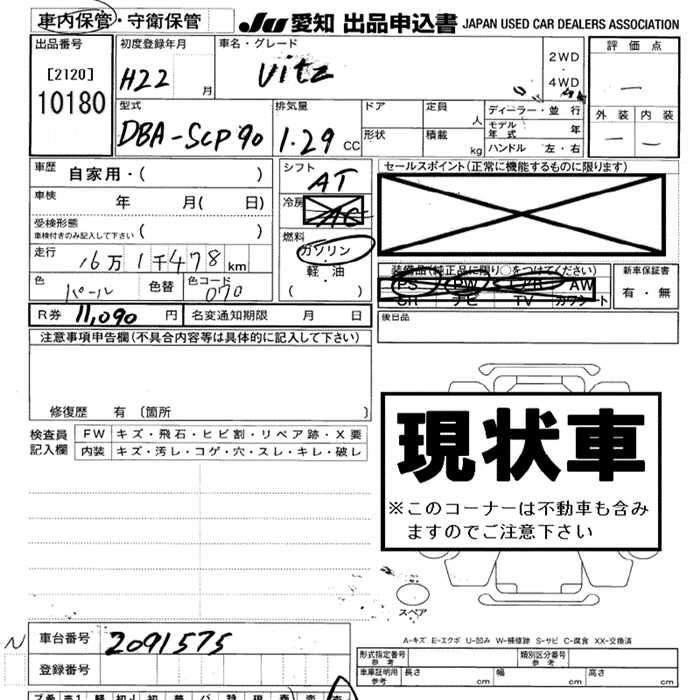 車内保管・守衛保管 JU 愛知 出品申込書 JAPAN USED CAR DEALERS ASSOCIATION
出品番号 初度登録年月 車名・グレード 2WD・4WD 評価点
[2120] H22 月 Vitz —
10180
型式 排気量 ドア 定員 人 ディーラー・並行 外装 内装
DBA-SCP90 1.29 CC 形状 積載 kg モデル年式 年 — —
ハンドル 左・右
車歴 自家用・( ) シフト AT セールスポイント(正常に機能するものに限ります)
車検 年 月( 日) 冷房 AC
受検形態 ( )
車検付きのみ記入して下さい
燃料 ガソリン・軽油 ( )
走行 16万1千478km 装備品(純正品に限り○をつけてください) 新車保証書
色 パール 色替 色コード 070 PS PW エアB AW 有・無
SR ナビ TV カワシート
R券 11,090円 名変通知期限 月 日 後日品
注意事項申告欄(不具合内容等は具体的に記入して下さい)
修復歴 有 〔箇所 〕
検査員記入欄 FW キズ・飛石・ヒビ割・リペア跡・X要
内装 キズ・汚レ・コゲ・穴・スレ・キレ・破レ
現状車
※このコーナーは不動車も含み
ますのでご注意下さい
スペア
A-キズ E-エクボ U-凹み W-補修跡 S-サビ C-腐食 XX-交換済
N 車台番号 2091575
登録番号
形式指定番号 参考 類別区分番号 参考
車庫証明用 参考 長さ cm 幅 cm 高さ cm